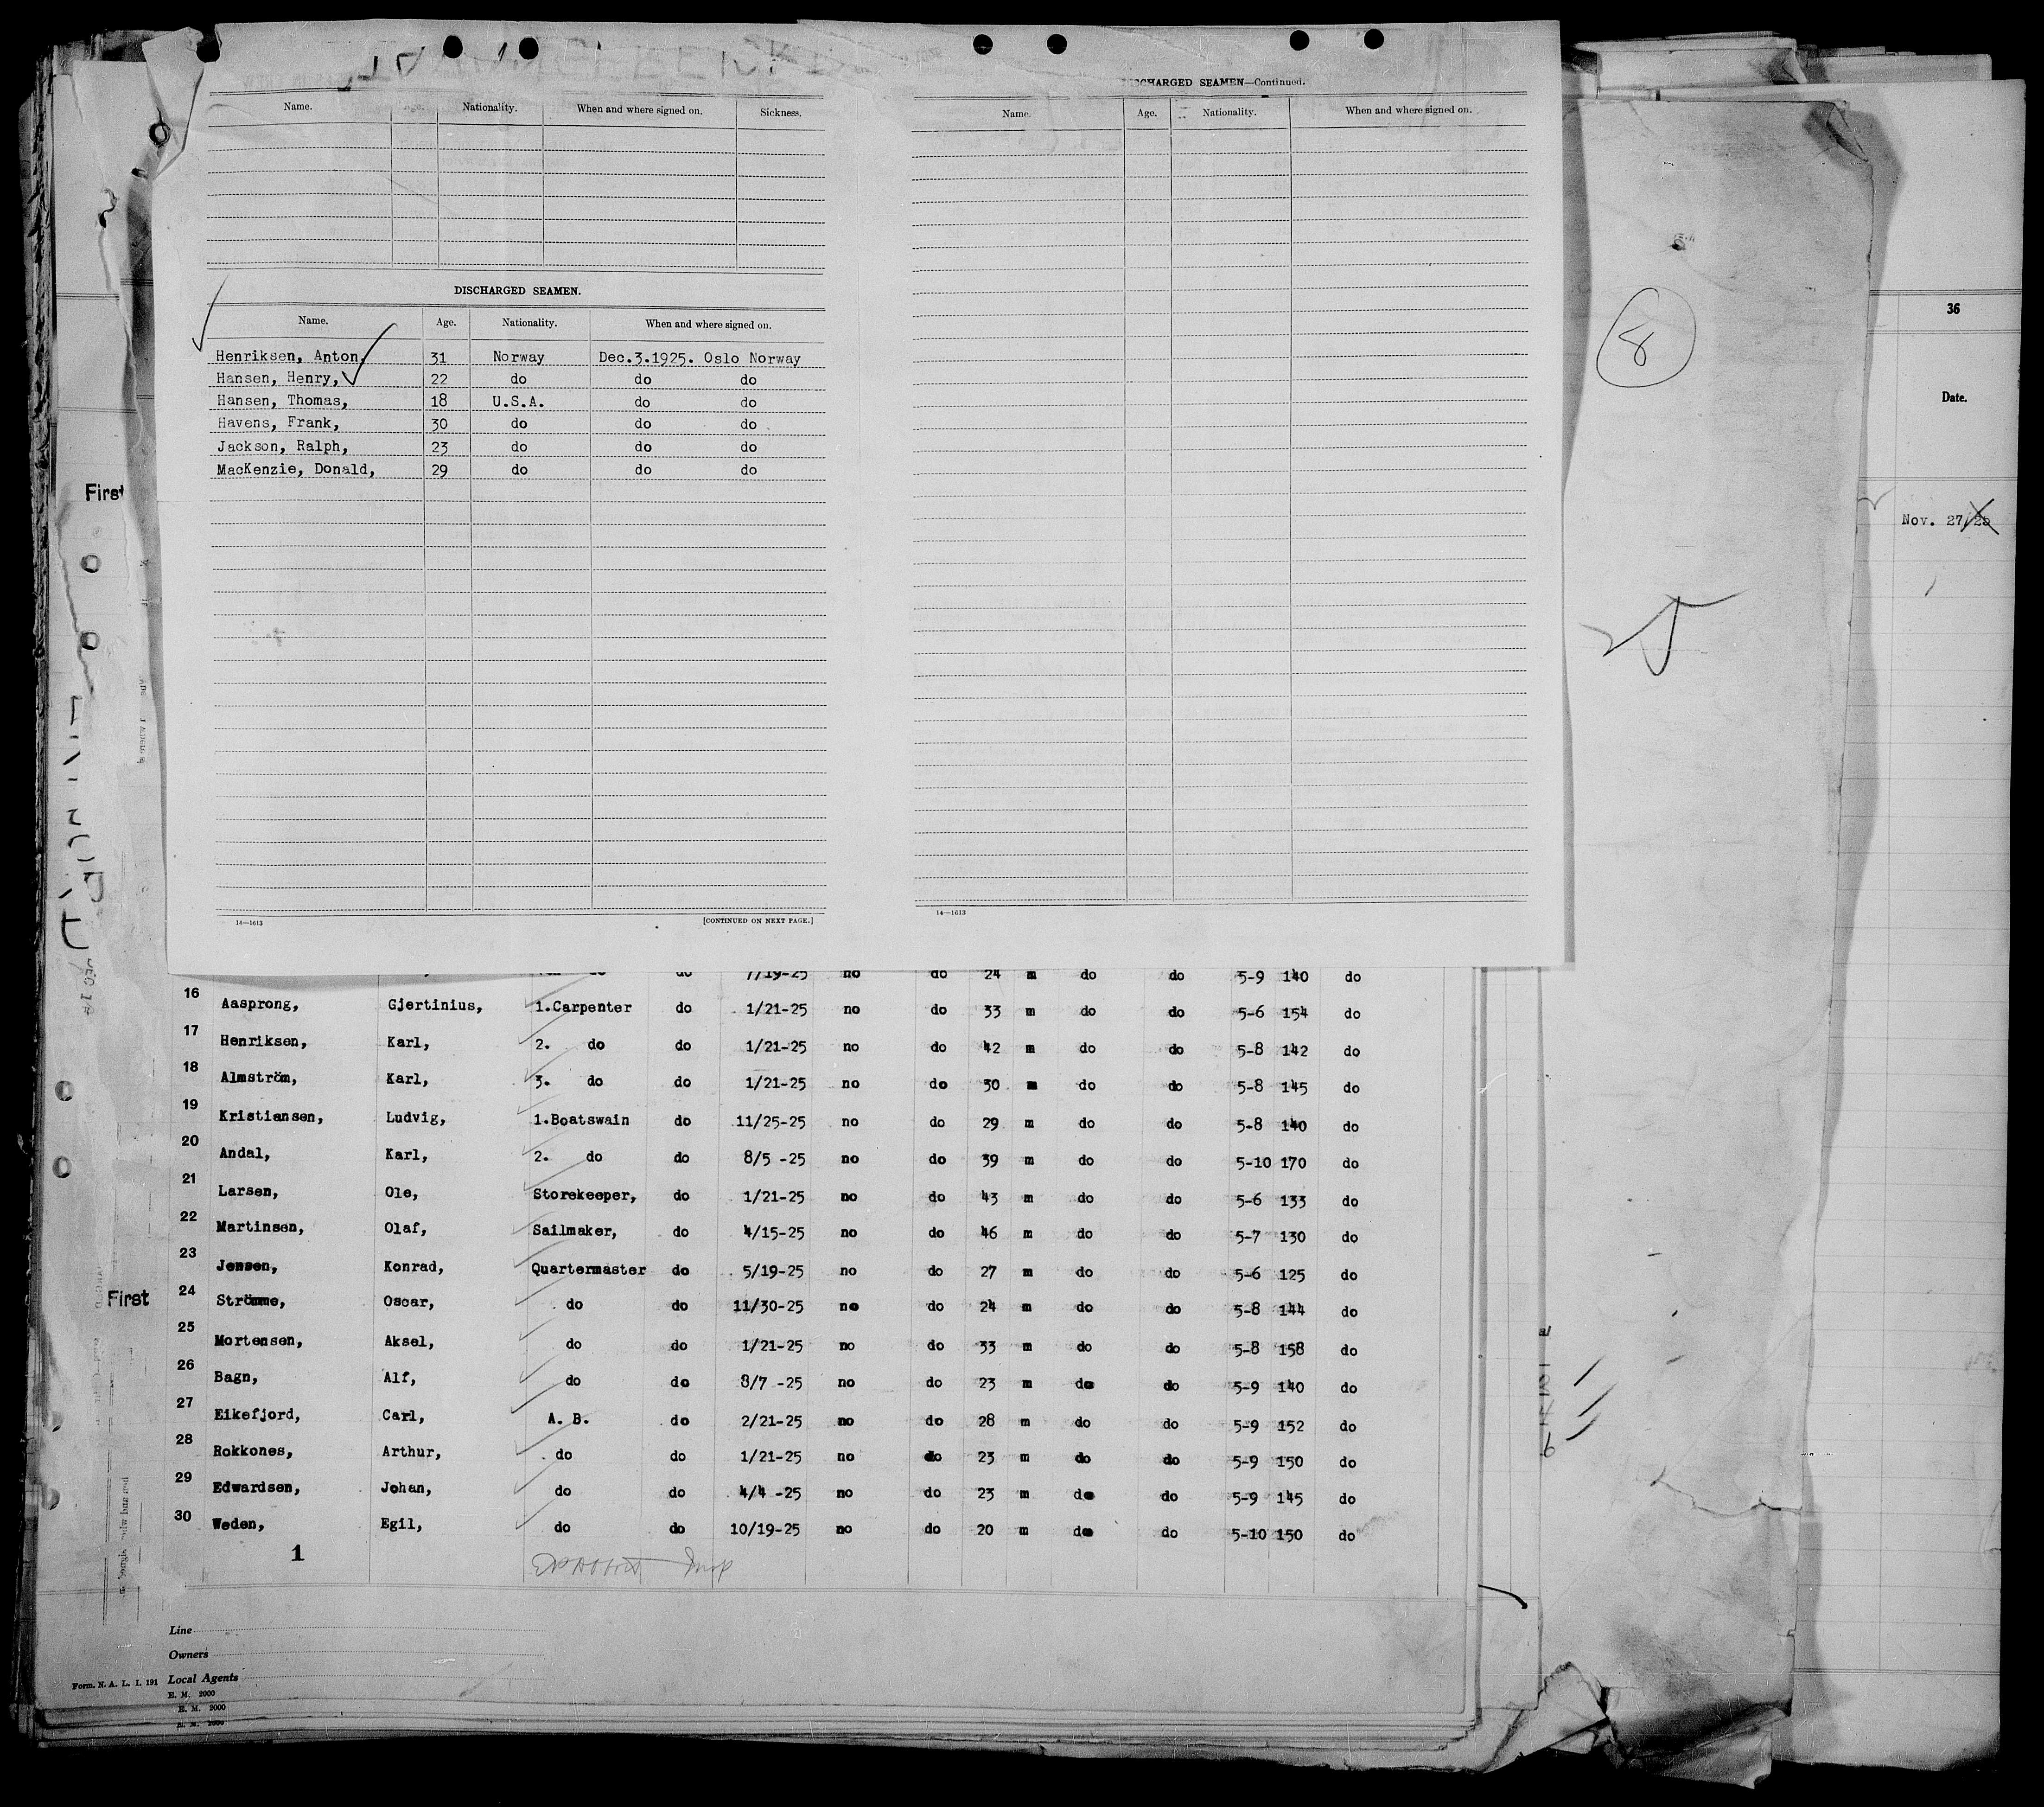 DISCHARGED SEAMEN—Continued.
Name. Age. Nationality. When and where signed on. Sickness.
Name. Age. Nationality. When and where signed on.
DISCHARGED SEAMEN.
Name. Age. Nationality. When and where signed on.
Henriksen, Anton, 31 Norway Dec.3.1925. Oslo Norway
Hansen, Henry, 22 do do do
Hansen, Thomas, 18 U.S.A. do do
Havens, Frank, 30 do do do
Jackson, Ralph, 23 do do do
MacKenzie, Donald, 29 do do do
14—1613 [CONTINUED ON NEXT PAGE.]
14—1613
8
36
Date.
Nov. 27/25
First
do 7/19-25 no do 24 m do do 5-9 140 do
16 Aasprong, Gjertinius, 1.Carpenter do 1/21-25 no do 33 m do do 5-6 154 do
17 Henriksen, Karl, 2. do do 1/21-25 no do 42 m do do 5-8 142 do
18 Almström, Karl, 3. do do 1/21-25 no do 30 m do do 5-8 145 do
19 Kristiansen, Ludvig, 1.Boatswain do 11/25-25 no do 29 m do do 5-8 140 do
20 Andal, Karl, 2. do do 8/5 -25 no do 39 m do do 5-10 170 do
21 Larsen, Ole, Storekeeper, do 1/21-25 no do 43 m do do 5-6 133 do
22 Martinsen, Olaf, Sailmaker, do 4/15-25 no do 46 m do do 5-7 130 do
23 Jensen, Konrad, Quartermaster do 5/19-25 no do 27 m do do 5-6 125 do
First
24 Strömme, Oscar, do do 11/30-25 no do 24 m do do 5-8 144 do
25 Mortensen, Aksel, do do 1/21-25 no do 33 m do do 5-8 158 do
26 Bagn, Alf, do do 8/7 -25 no do 23 m do do 5-9 140 do
27 Eikefjord, Carl, A. B. do 2/21-25 no do 28 m do do 5-9 152 do
28 Rokkones, Arthur, do do 1/21-25 no do 23 m do do 5-9 150 do
29 Edwardsen, Johan, do do 4/4 -25 no do 23 m do do 5-9 145 do
30 Weden, Egil, do do 10/19-25 no do 20 m do do 5-10 150 do
1
Line
Owners
Form. N. A. L. I. 191 Local Agents
E. M. 2000
E. M. 2000
E. M. 2000